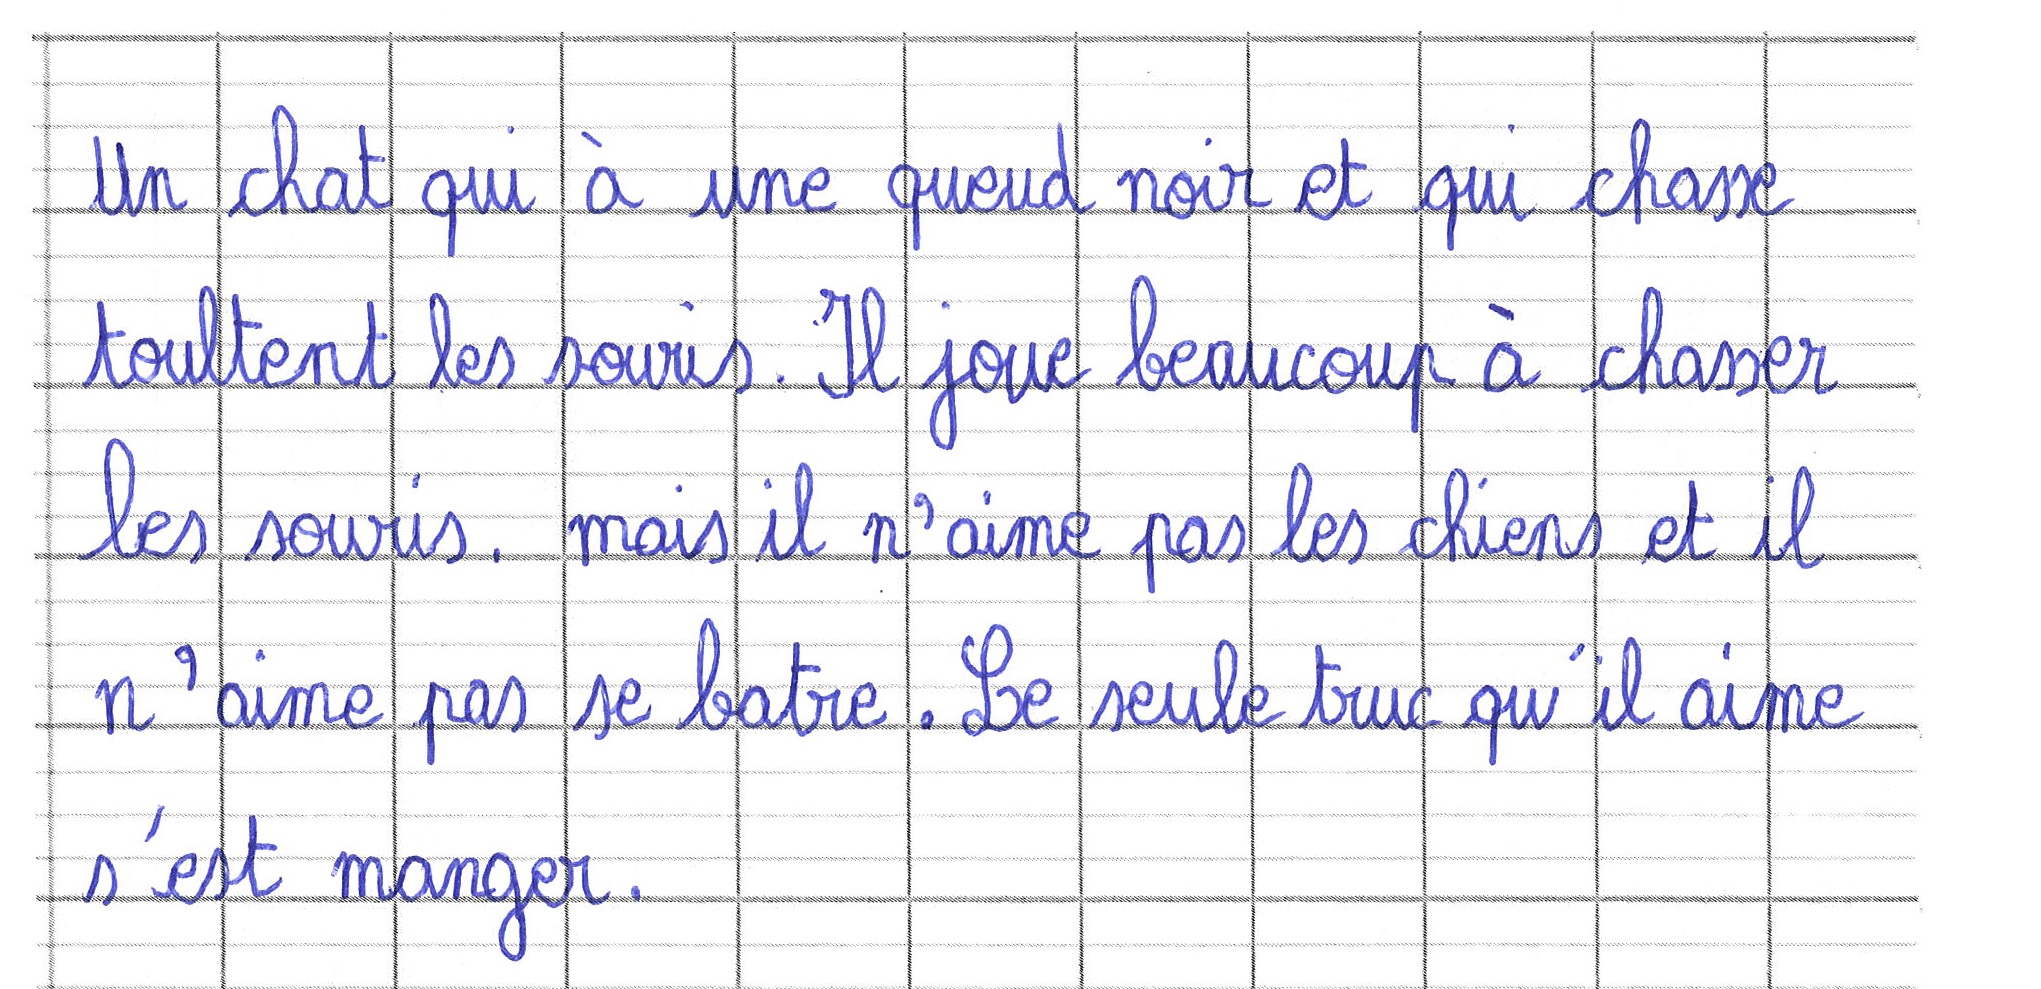 Un chat qui à une queud noir et qui chasse
toultent les souris. Il joue beaucoup à chasser
les souris. mais il n'aime pas les chiens et il
n'aime pas se batre. Le seule truc qu'il aime
s'est manger.